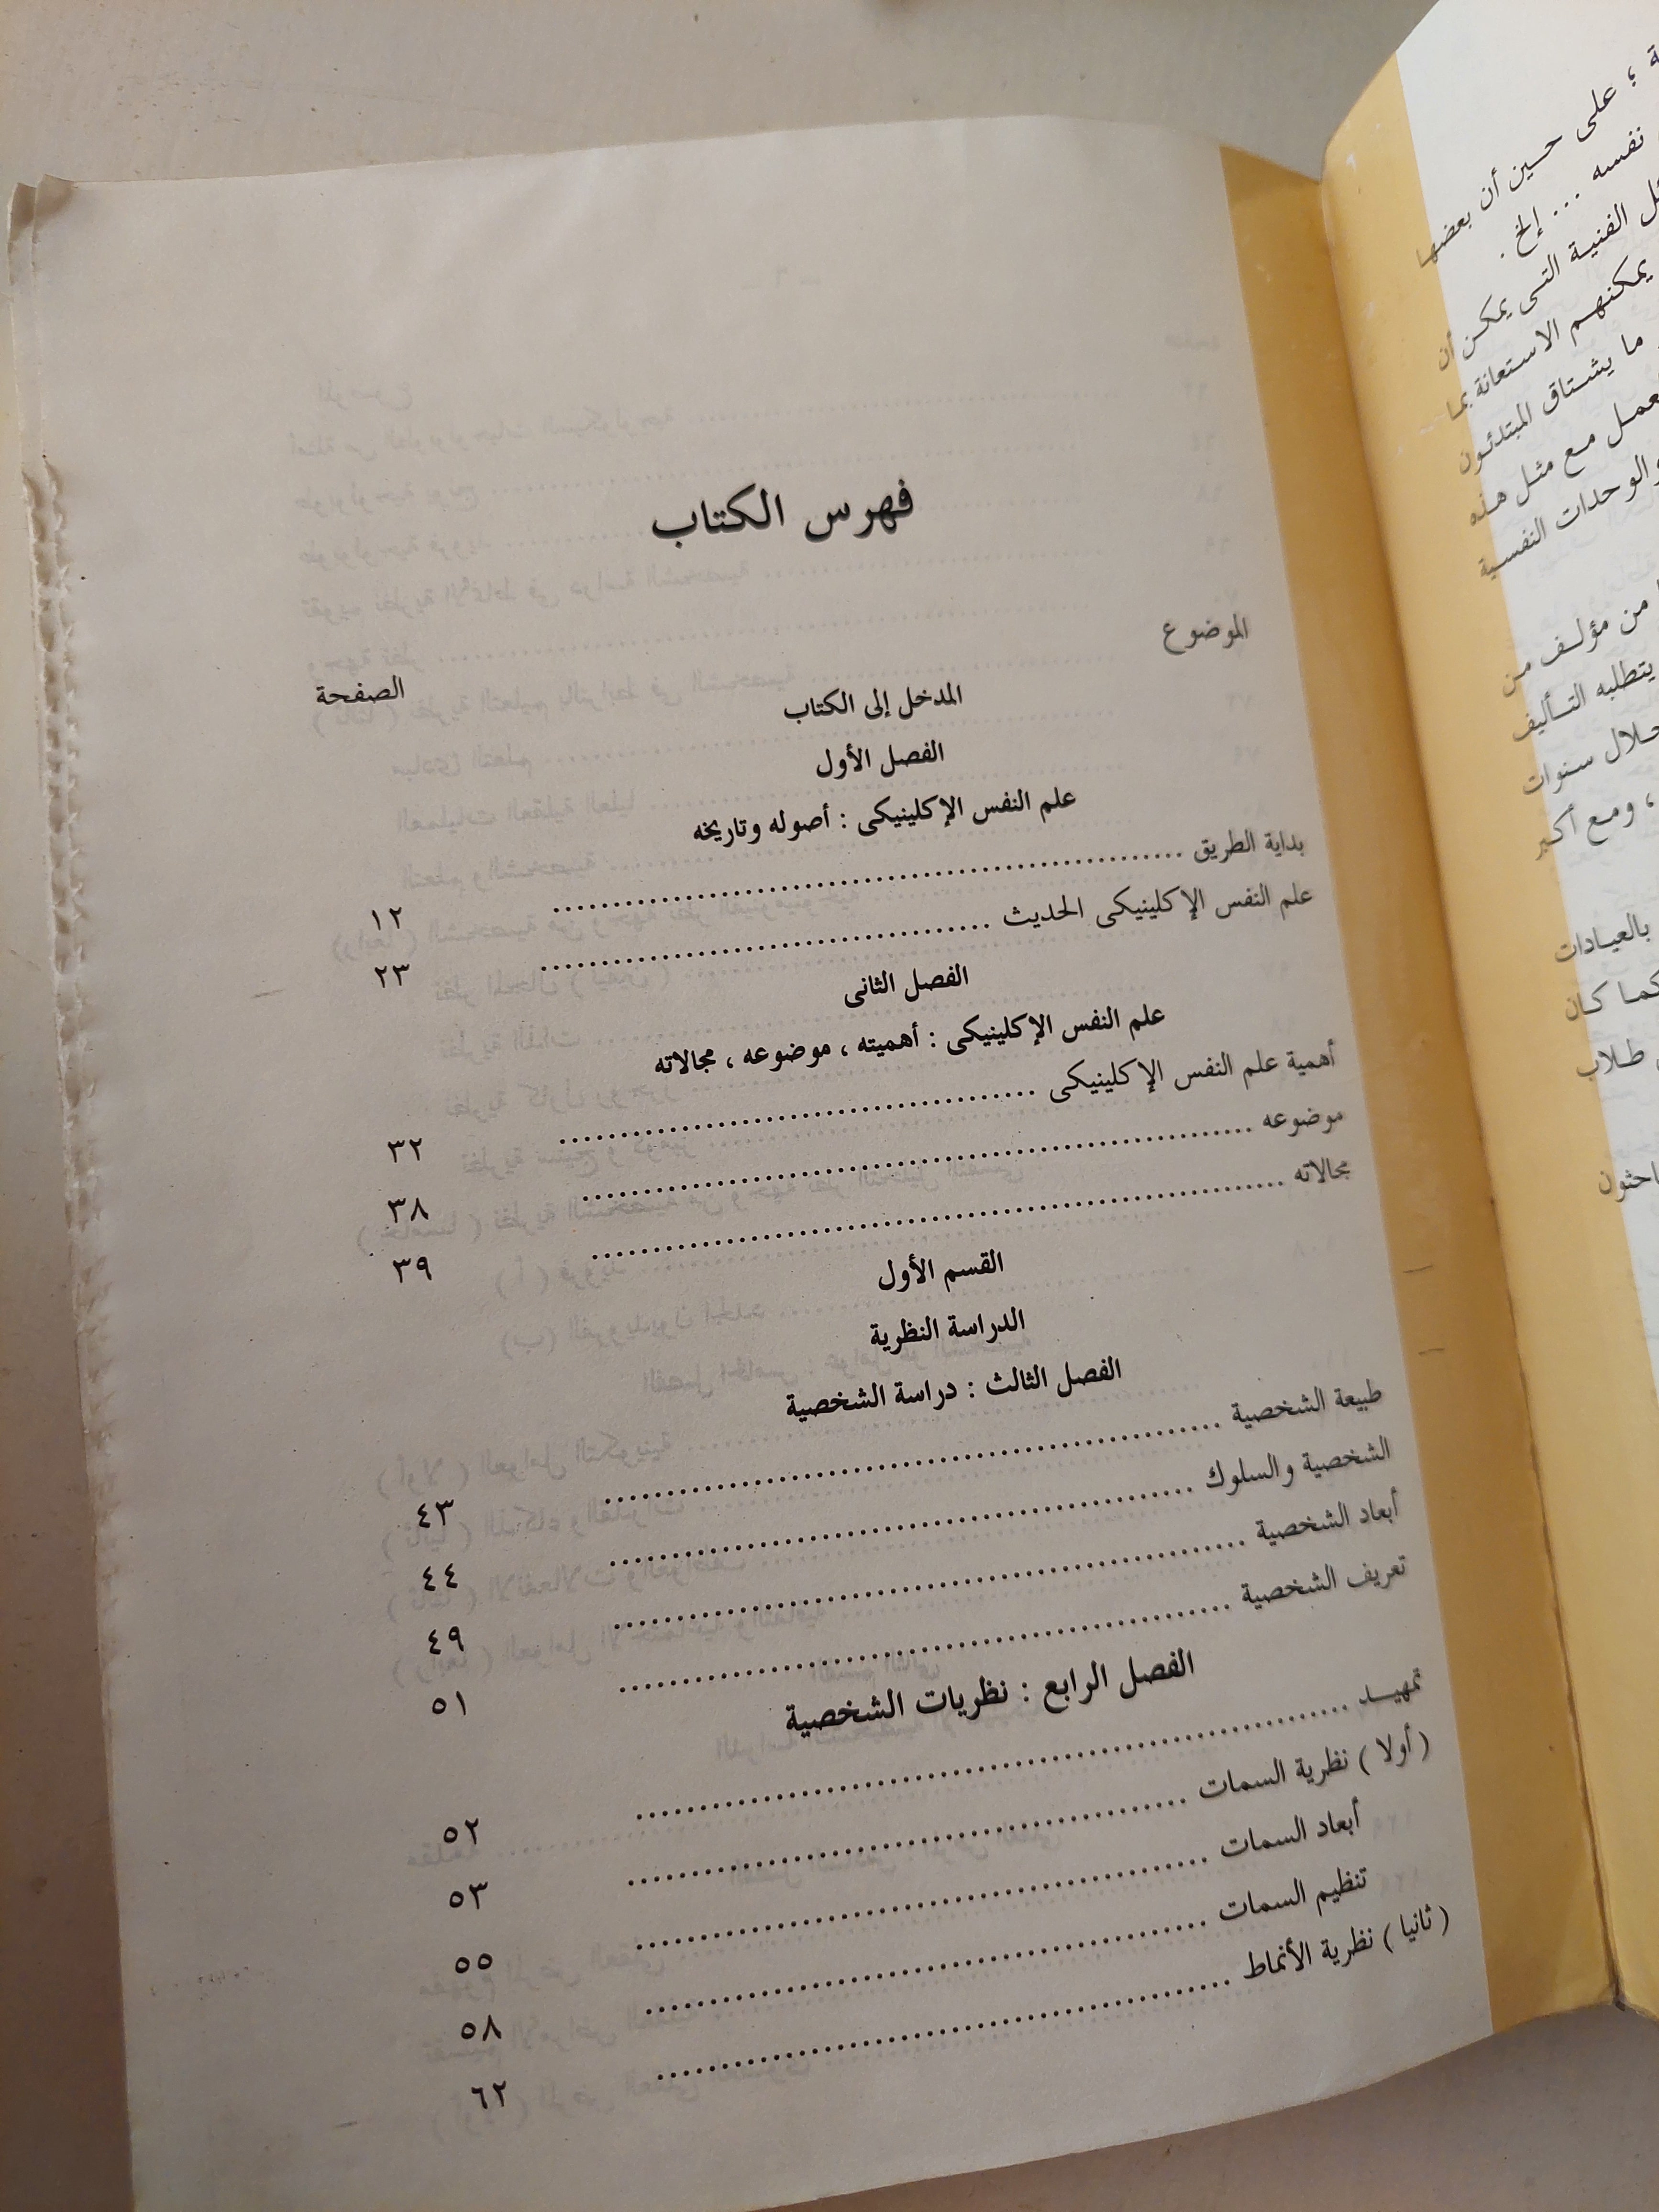 فهرس الكتاب
الموضوع الصفحة
المدخل إلى الكتاب
الفصل الأول
علم النفس الإكلينيكى : أصوله وتاريخه
بداية الطريق ........ ١٢
علم النفس الإكلينيكى الحديث ........ ٢٣
الفصل الثانى
علم النفس الإكلينيكى : أهميته ، موضوعه ، مجالاته
أهمية علم النفس الإكلينيكى ........ ٣٢
موضوعه ........ ٣٨
مجالاته ........ ٣٩
القسم الأول
الدراسة النظرية
الفصل الثالث : دراسة الشخصية
طبيعة الشخصية ........ ٤٣
الشخصية والسلوك ........ ٤٤
أبعاد الشخصية ........ ٤٩
تعريف الشخصية ........ ٥١
الفصل الرابع : نظريات الشخصية
تمهيد ........ ٥٢
( أولا ) نظرية السمات ........ ٥٣
أبعاد السمات ........ ٥٥
تنظيم السمات ........ ٥٨
( ثانيا ) نظرية الأنماط ........ ٦٢
؛ على حين أن بعضها
نفسه ... إلخ .
الفنية التى يمكن أن
يمكنهم الاستعانة بما
ما يشتاق المبتدئون
مع مثل هذه
والوحدات النفسية
من مؤلف من
يتطلبه التأليف
سنوات
، ومع أكبر
بالعيادات
كما كان
طلاب